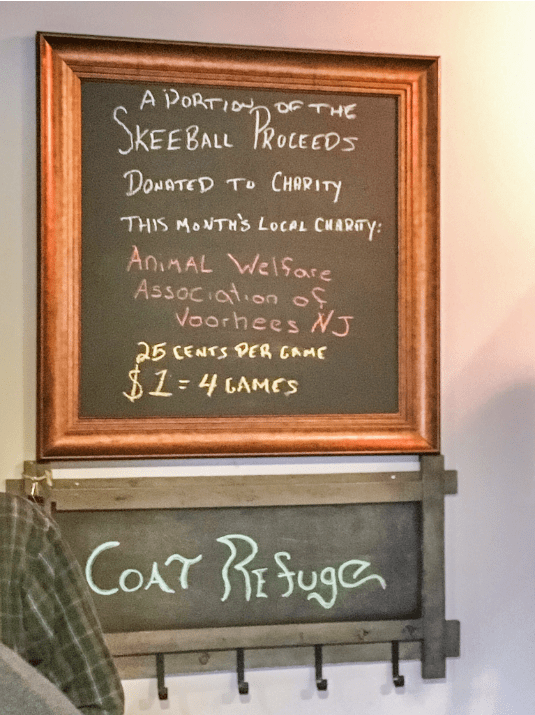 A PORTION OF THE
SKEEBALL PROCEEDS
DONATED TO CHARITY
THIS MONTH'S LOCAL CHARITY:
ANiMAL Welfare
Association of
Voorhees NJ
25 CENTS PER GAME
$1 = 4 GAMES
COAT REfuge